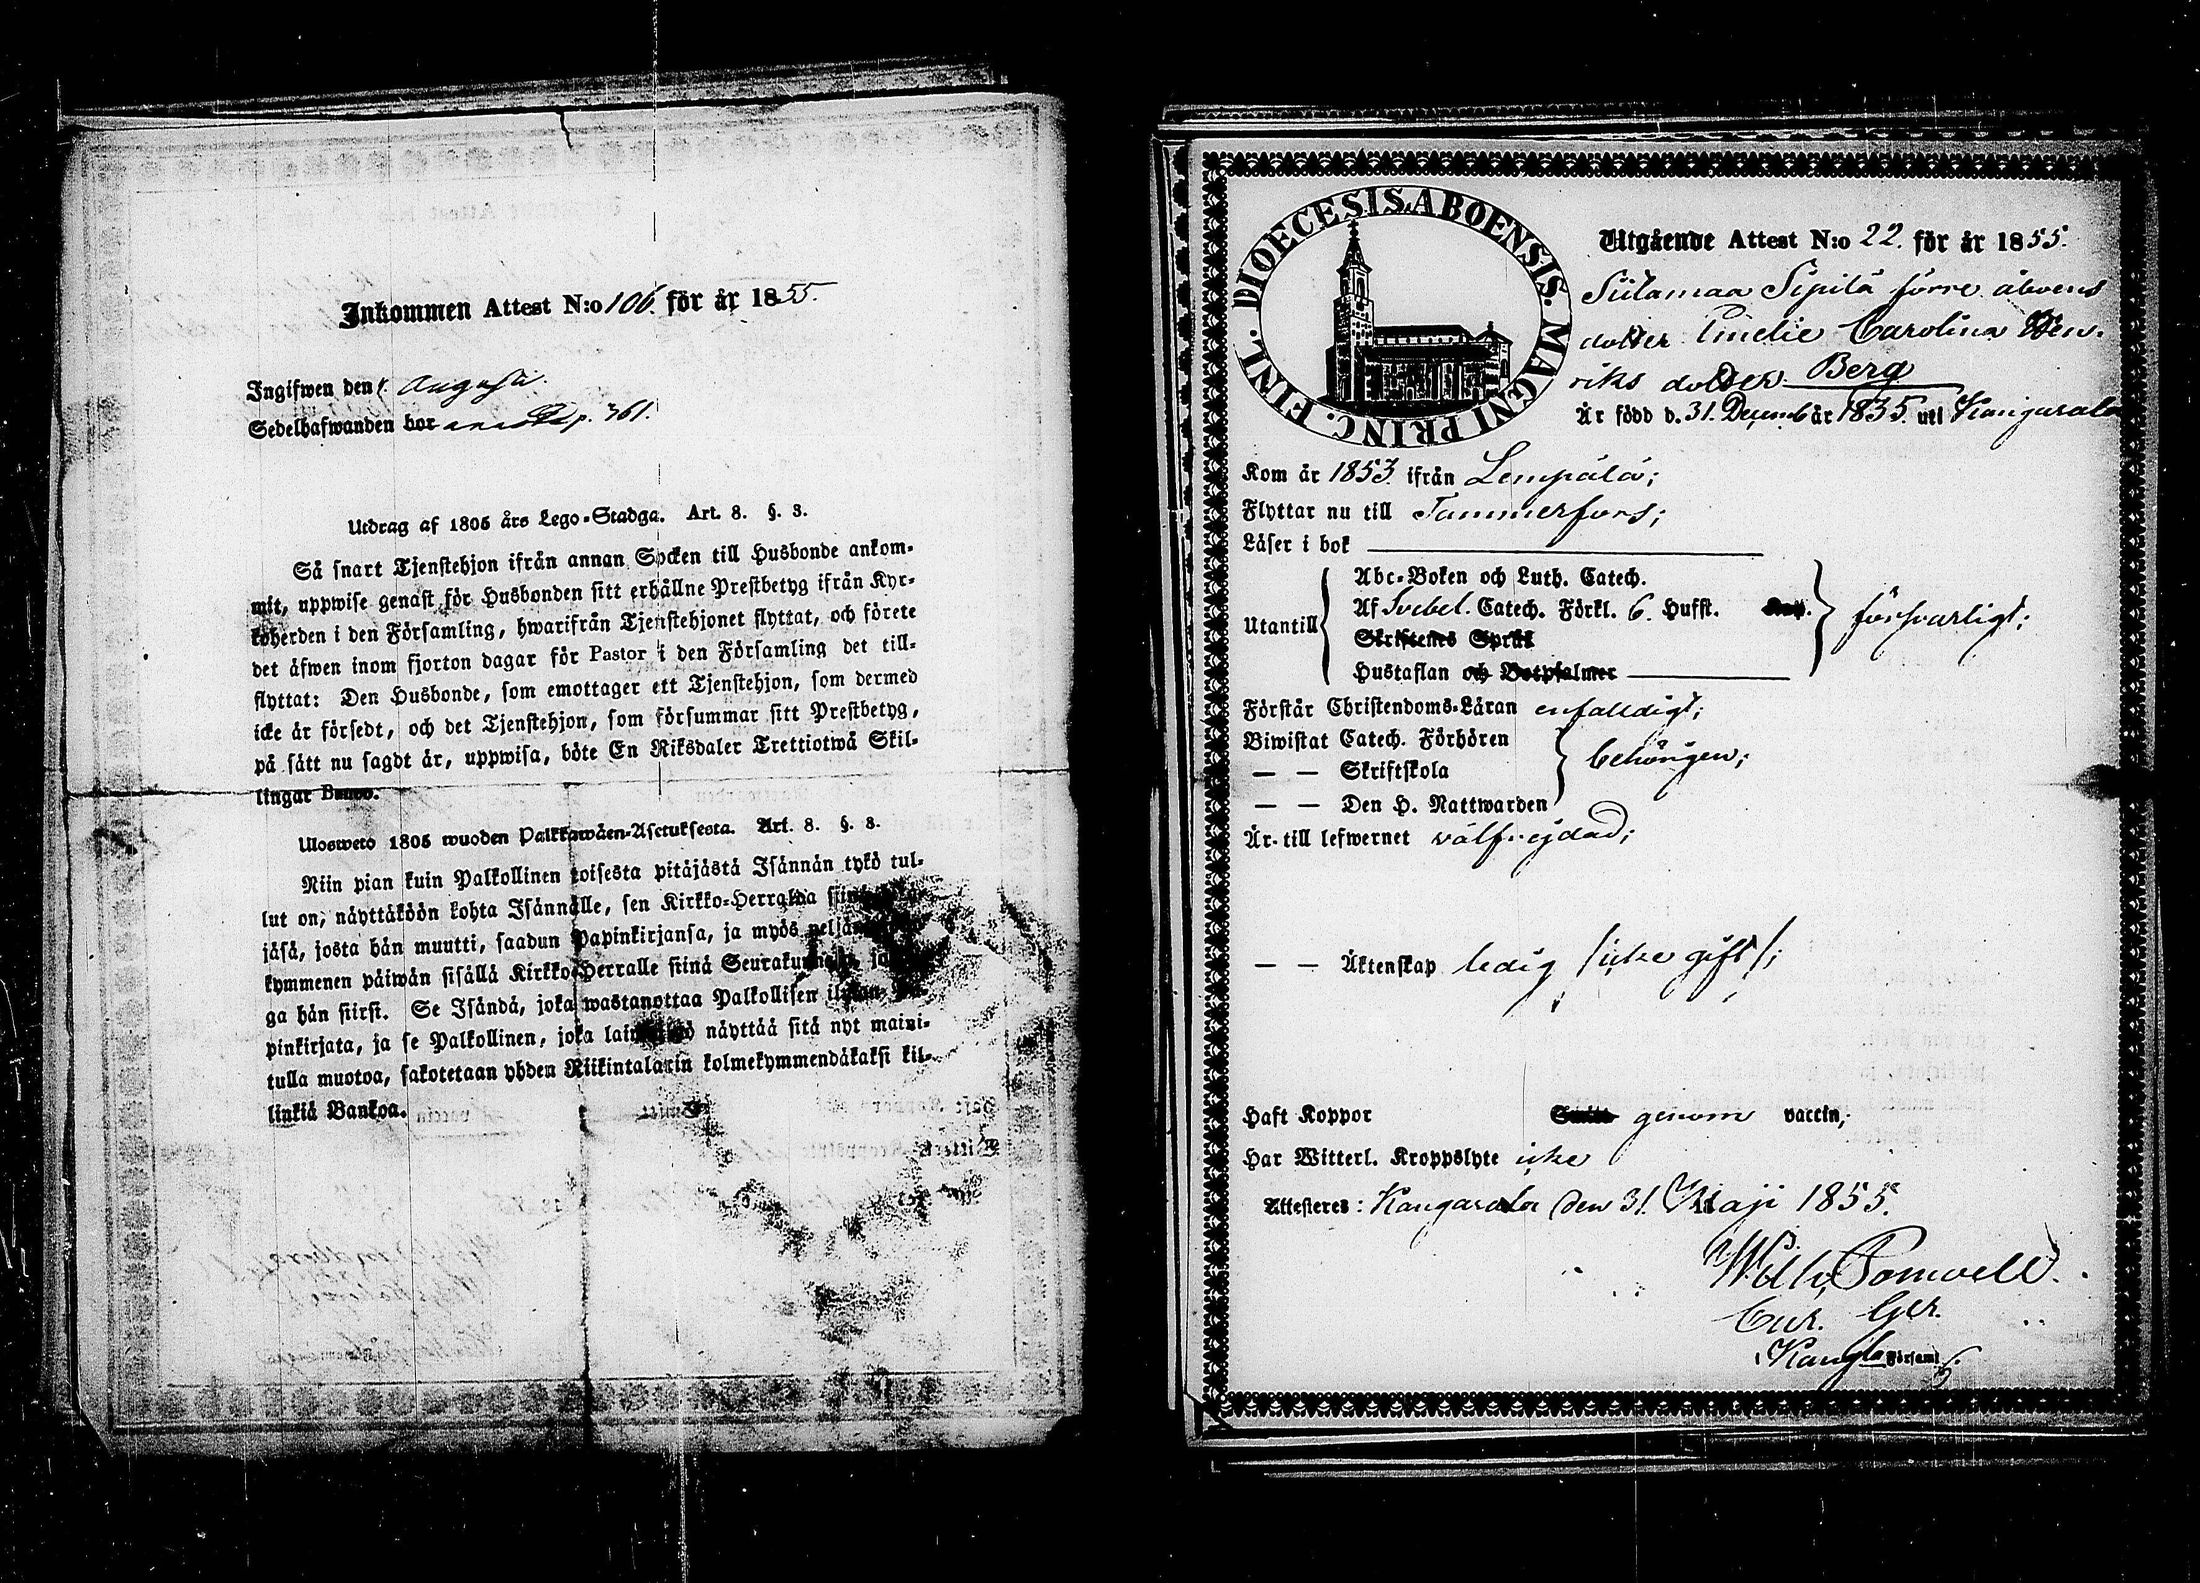 Inkommen Attest N:o 106. för år 1855.
Ingifwen den 1. Augusti.
Sedelhafwanden bor p. 361.
Utdrag af 1805 års Lego-Stadga. Art. 8. §. 3.
Så snart Tjenstehjon ifrån annan Socken till Husbonde ankom-
mit, uppwise genast för Husbonden sitt erhållne Prestbetyg ifrån Kyr-
koherden i den Församling, hwarifrån Tjenstehjonet flyttat, och förete
det äfwen inom fjorton dagar för Pastor i den Församling det till-
flyttat: Den Husbonde, som emottager ett Tjenstehjon, som dermed
icke är försedt, och det Tjenstehjon, som försummar sitt Prestbetyg,
på sätt nu sagdt är, uppwisa, böte En Riksdaler Trettiotwå Skil-
lingar Banco.
Uloswetö 1805 wuoden Palkkawäen-Asetuksesta. Art. 8. §. 3.
Niin pian kuin Palkollinen toisesta pitäjästä Isännän tykö tul-
lut on, näyttäköön kohta Isännälle, sen Kirkko-Herralda siinä
jäsä, josta hän muutti, saadun Papinkirjansa, ja myös neljän
kymmenen päiwän sisällä Kirkko-Herralle siinä Seurakunnasa,
ga hän siirsi. Se Isändä, joka wastanottaa Palkollisen ilman Pa-
pinkirjata, ja se Palkollinen, joka näyttää sitä nyt maini-
tulla muotoa, sakotetaan yhden Riikintalarin kolmekymmendäkaksi kil-
linkiä Bankoa.
DIOECESIS ABOENSIS. MAGNI PRINC. FINL.
Utgående Attest N:o 22. för år 1855.
Siitamaa Sipilä förre åboens
dotter Emelie Carolina Hen-
riks dotter Berg
Är född d. 31. Decemb år 1835. uti Kangasala
Kom år 1853. ifrån Lempälä;
Flyttar nu till Tammerfors;
Läser i bok
Abc-Boken och Luth. Catech.
Utantill Af Svebel. Catech. Förkl. 6. Hufst. Kap. försvarligt;
Skriftenes Språk
Hustaflan och Botpsalmer
Förstår Christendoms-Läran enfaldigt;
Biwistat Catech. Förhören
— — Skriftskola behörigen;
— — Den H. Nattwarden
Är till lefwernet välfrejdad;
— — Äktenskap ledig /icke gift/;
Haft Koppor Smitt genom vaccin;
Har Witterl. Kroppslyte icke
Attesteres: Kangasala den 31. Maji 1855.
Wilh. Pomoell.
Cur. Ger.
i Kangla Församl.